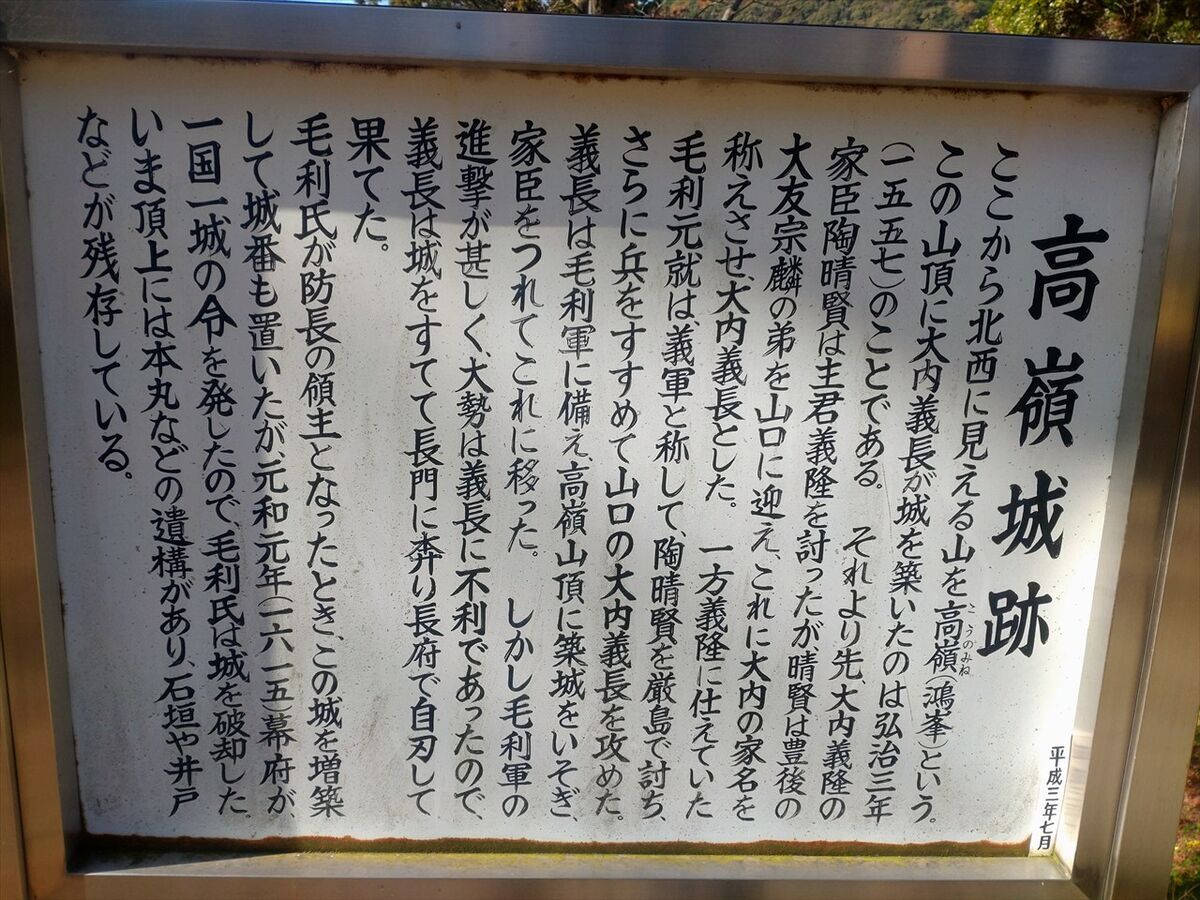 高嶺城跡
ここから北西に見える山を高嶺(鴻峯)という。
こうのみね
この山頂に大内義長が城を築いたのは弘治三年
(一五五七)のことである。 それより先、大内義隆の
家臣陶晴賢は主君義隆を討ったが、晴賢は豊後の
大友宗麟の弟を山口に迎え、これに大内の家名を
称えさせ、大内義長とした。 一方義隆に仕えていた
毛利元就は義軍と称して、陶晴賢を厳島で討ち、
さらに兵をすすめて山口の大内義長を攻めた。
義長は毛利軍に備え、高嶺山頂に築城をいそぎ、
家臣をつれてこれに移った。 しかし毛利軍の
進撃が甚しく、大勢は義長に不利であったので、
義長は城をすてて長門に奔り長府で自刃して
果てた。
毛利氏が防長の領主となったとき、この城を増築
して城番も置いたが、元和元年(一六一五)幕府が
一国一城の令を発したので、毛利氏は城を破却した。
いま頂上には本丸などの遺構があり、石垣や井戸
などが残存している。
平成三年七月